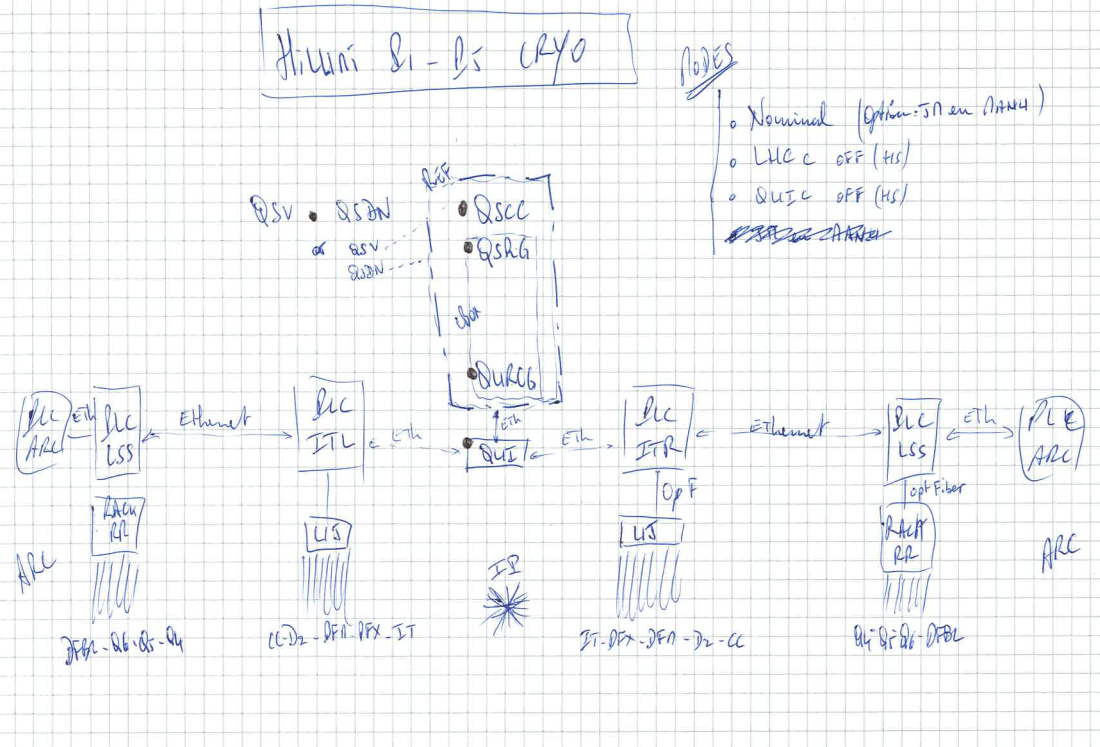 HiLumi P1 - P5 CRYO
MODES
• Nominal (Option: JM en MANU)
• LHC c OFF (HS)
• QUIC OFF (HS)
REF
QSV • QSDN
or QSV
QSDN
• QSCC
• QSRG
• QURCG
Eth
• QUI
PLC
ARC
ETh
PLC
LSS
Ethernet
PLC
ITL
ETh
ETh
PLC
ITR
Ethernet
PLC
LSS
ETh
PLC
ARC
Op F
Opt Fiber
ARC
RACK
RR
UJ
IP
UJ
RACK
RR
ARC
DFBL - Q6 - Q5 - Q4
CC-D2 - DFM - DFX - IT
IT - DFX - DFM - D2 - CC
Q4 - Q5 - Q6 - DFBL